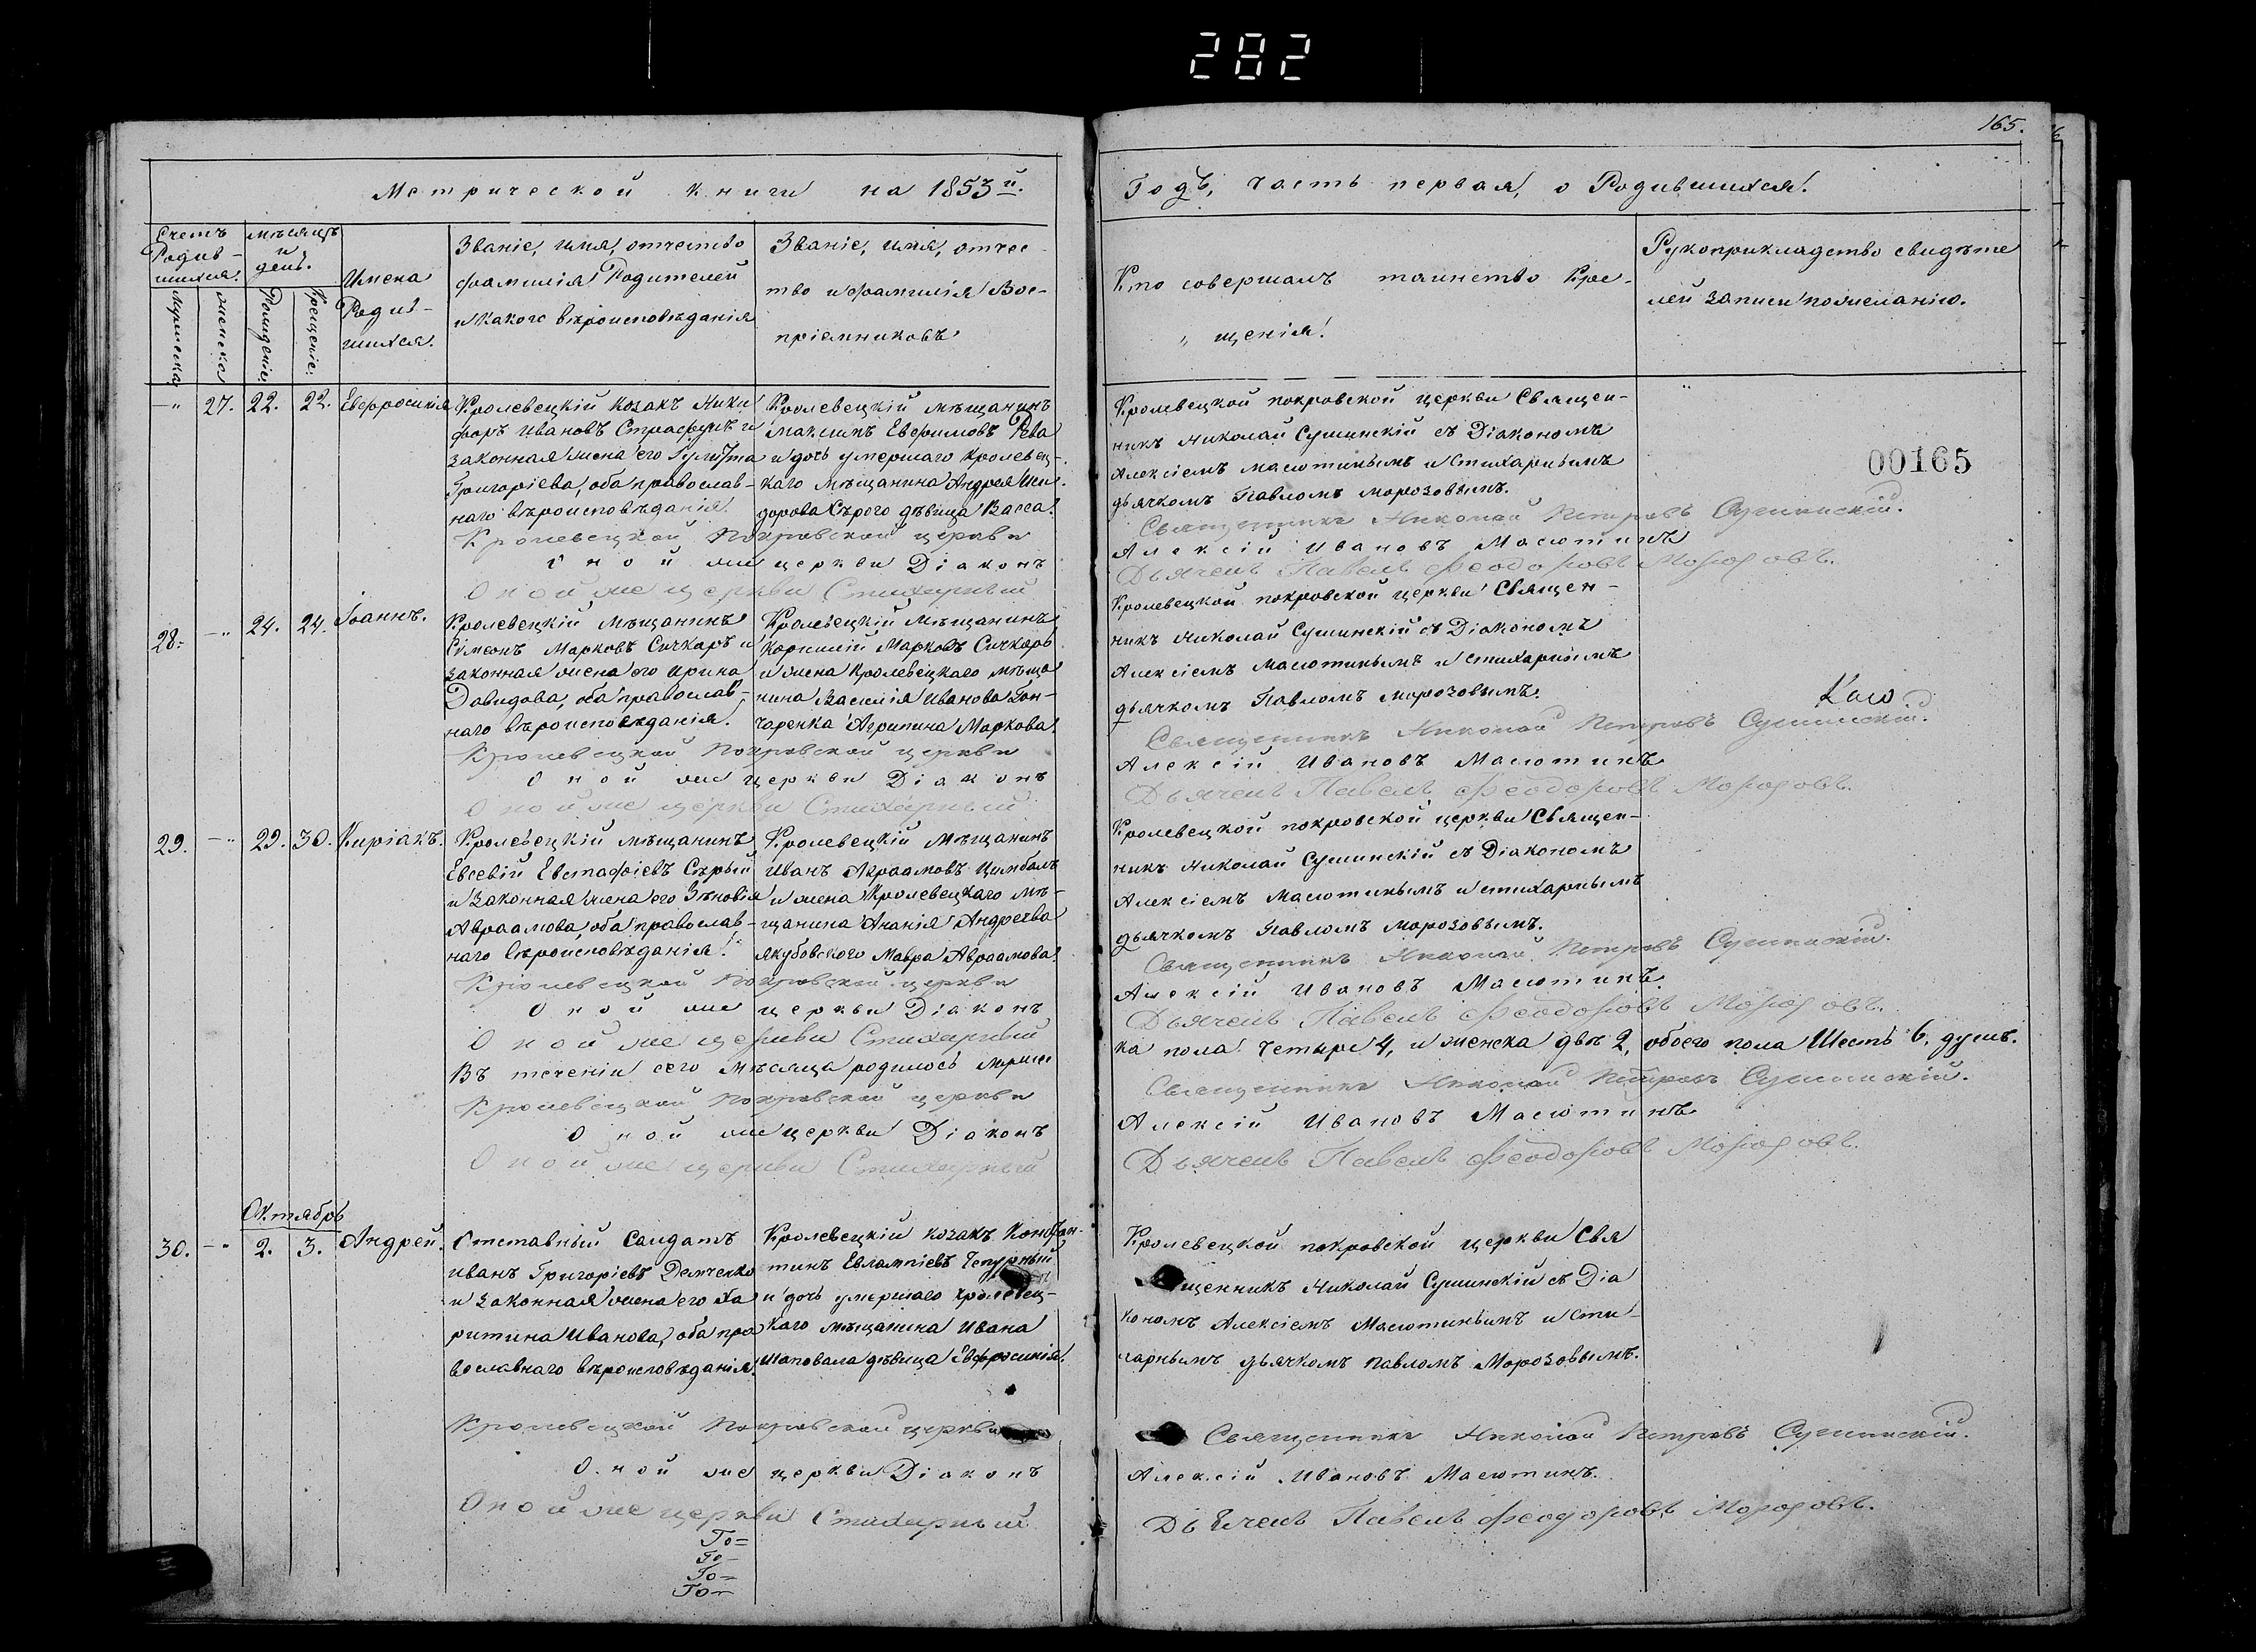 282
165.
Метрической книги на 1853й.
Годъ, часть первая, о Родившихся.
Счетъ Родив-шихся.
мужеска
женска
мѣсяцъ и день.
Рожденіе.
Крещеніе.
Имена Родив-шихся.
Званіе, имя, отчество
фамилія Родителей
и какого вѣроисповѣданія
Званіе, имя, отчес-
тво и фамилія Вос-
пріемниковъ
Кто совершалъ таинство Кре-
щенія.
Рукоприкладство свидѣте
лей записи по желанію.
-" 27. 22. 22. Евфросинія
Кролевецкій козакъ Ники
форъ Ивановъ и
законная жена его
Григоріева, оба православ-
наго вѣроисповѣданія.
Кролевецкій мѣщанинъ
Максимъ Евфимовъ Рева
и дочь умершаго Кролевец-
каго мѣщанина Андрея Иси-
дорова Сѣрого дѣвица Васса.
Кролевецкой покровской церкви Священ-
никъ Николай Сушинскій съ Діакономъ
Алексіемъ Масютинымъ и стихарнымъ
дьячкомъ Павломъ Морозовымъ.
00165
Кролевецкой Покровской церкви Священникъ Николай Петровъ Сушинскій.
Оной же церкви Діаконъ Алексій Ивановъ Масютинъ
Оной же церкви Стихарный Дьячекъ Павелъ Феодоровъ Морозовъ.
28. -" 24. 24. Іоаннъ.
Кролевецкій Мѣщанинъ
Сімеонъ Марковъ Сичкаръ и
законная жена его Ирина
Давидова, оба православ-
наго вѣроисповѣданія.
Кролевецкій Мѣщанинъ
Корнилій Марковъ Сичкаръ
и жена Кролевецкаго мѣща
нина Василія Иванова Гон-
чаренка Агрипина Маркова.
Кролевецкой покровской церкви Священ-
никъ Николай Сушинскій съ Діакономъ
Алексіемъ Масютинымъ и стихарнымъ
дьячкомъ Павломъ Морозовымъ.
Кролевецкой Покровской церкви Священникъ Николай Петровъ Сушинскій.
Оной же церкви Діаконъ Алексій Ивановъ Масютинъ
Оной же церкви Стихарный Дьячекъ Павелъ Феодоровъ Морозовъ.
29. -" 29. 30. Киріакъ.
Кролевецкій мѣщанинъ
Евсевій Евстафіевъ Сѣрый
и законная жена его Зѣновія
Авраамова, оба православ-
наго вѣроисповѣданія.
Кролевецкій Мѣщанинъ
Иванъ Авраамовъ Цимбалъ
и жена Кролевецкаго мѣ-
щанина Ананія Андреева
Якубовского Мавра Авраамова.
Кролевецкой покровской церкви Священ-
никъ Николай Сушинскій съ Діакономъ
Алексіемъ Масютинымъ и стихарнымъ
дьячкомъ Павломъ Морозовымъ.
Кролевецкой Покровской церкви Священникъ Николай Петровъ Сушинскій.
Оной же церкви Діаконъ Алексій Ивановъ Масютинъ.
Оной же церкви Стихарный Дьячекъ Павелъ Феодоровъ Морозовъ.
Въ теченіи сего Мѣсяца родилось мужес ка пола четыре 4, и женска двѣ 2, обоего пола Шесть 6. душъ.
Кролевецкой Покровской церкви Священникъ Николай Петровъ Сушинскій.
Оной же церкви Діаконъ Алексій Ивановъ Масютинъ
Оной же церкви Стихарный Дьячекъ Павелъ Феодоровъ Морозовъ.
Октябрь
30. -" 2. 3. Андрей.
Отставный Салдатъ
Иванъ Григоріевъ Демченко
и законная жена его Ха
ритина Иванова, оба пра
вославнаго вѣроисповѣданія.
Кролевецкій козакъ Констан-
тинъ Евлампіевъ Чепурный
и дочь умершаго Кролевец-
каго мѣщанина Ивана
Шаповала дѣвица Евфросинія.
Кролевецкой покровской церкви Свя
щенникъ Николай Сушинскій съ Діа
кономъ Алексіемъ Масютинымъ и сти-
харнымъ дьячкомъ Павломъ Морозовымъ.
Кролевецкой Покровской церкви Священникъ Николай Петровъ Сушинскій.
Оной же церкви Діаконъ Алексій Ивановъ Масютинъ.
Оной же церкви Стихарный Дьячекъ Павелъ Феодоровъ Морозовъ.
Го=
Го-
Го-
Го-